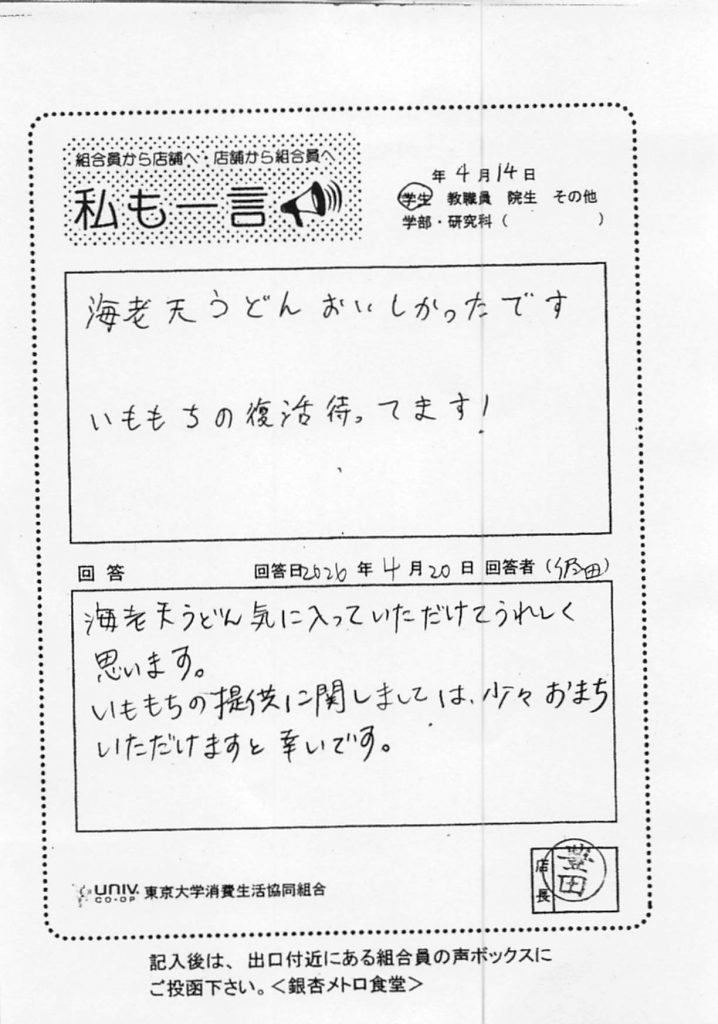 組合員から店舗へ・店舗から組合員へ
私も一言
年 4月14日
学生 教職員 院生 その他
学部・研究科( )
海老天うどんおいしかったです
いももちの復活待ってます!
回答 回答日2026年4月20日 回答者( 田)
海老天うどん気に入っていただけてうれしく
思います。
いももちの提供に関しましては、少々おまち
いただけますと幸いです。
UNIV. CO-OP 東京大学消費生活協同組合
店長 豊田
記入後は、出口付近にある組合員の声ボックスに
ご投函下さい。<銀杏メトロ食堂>